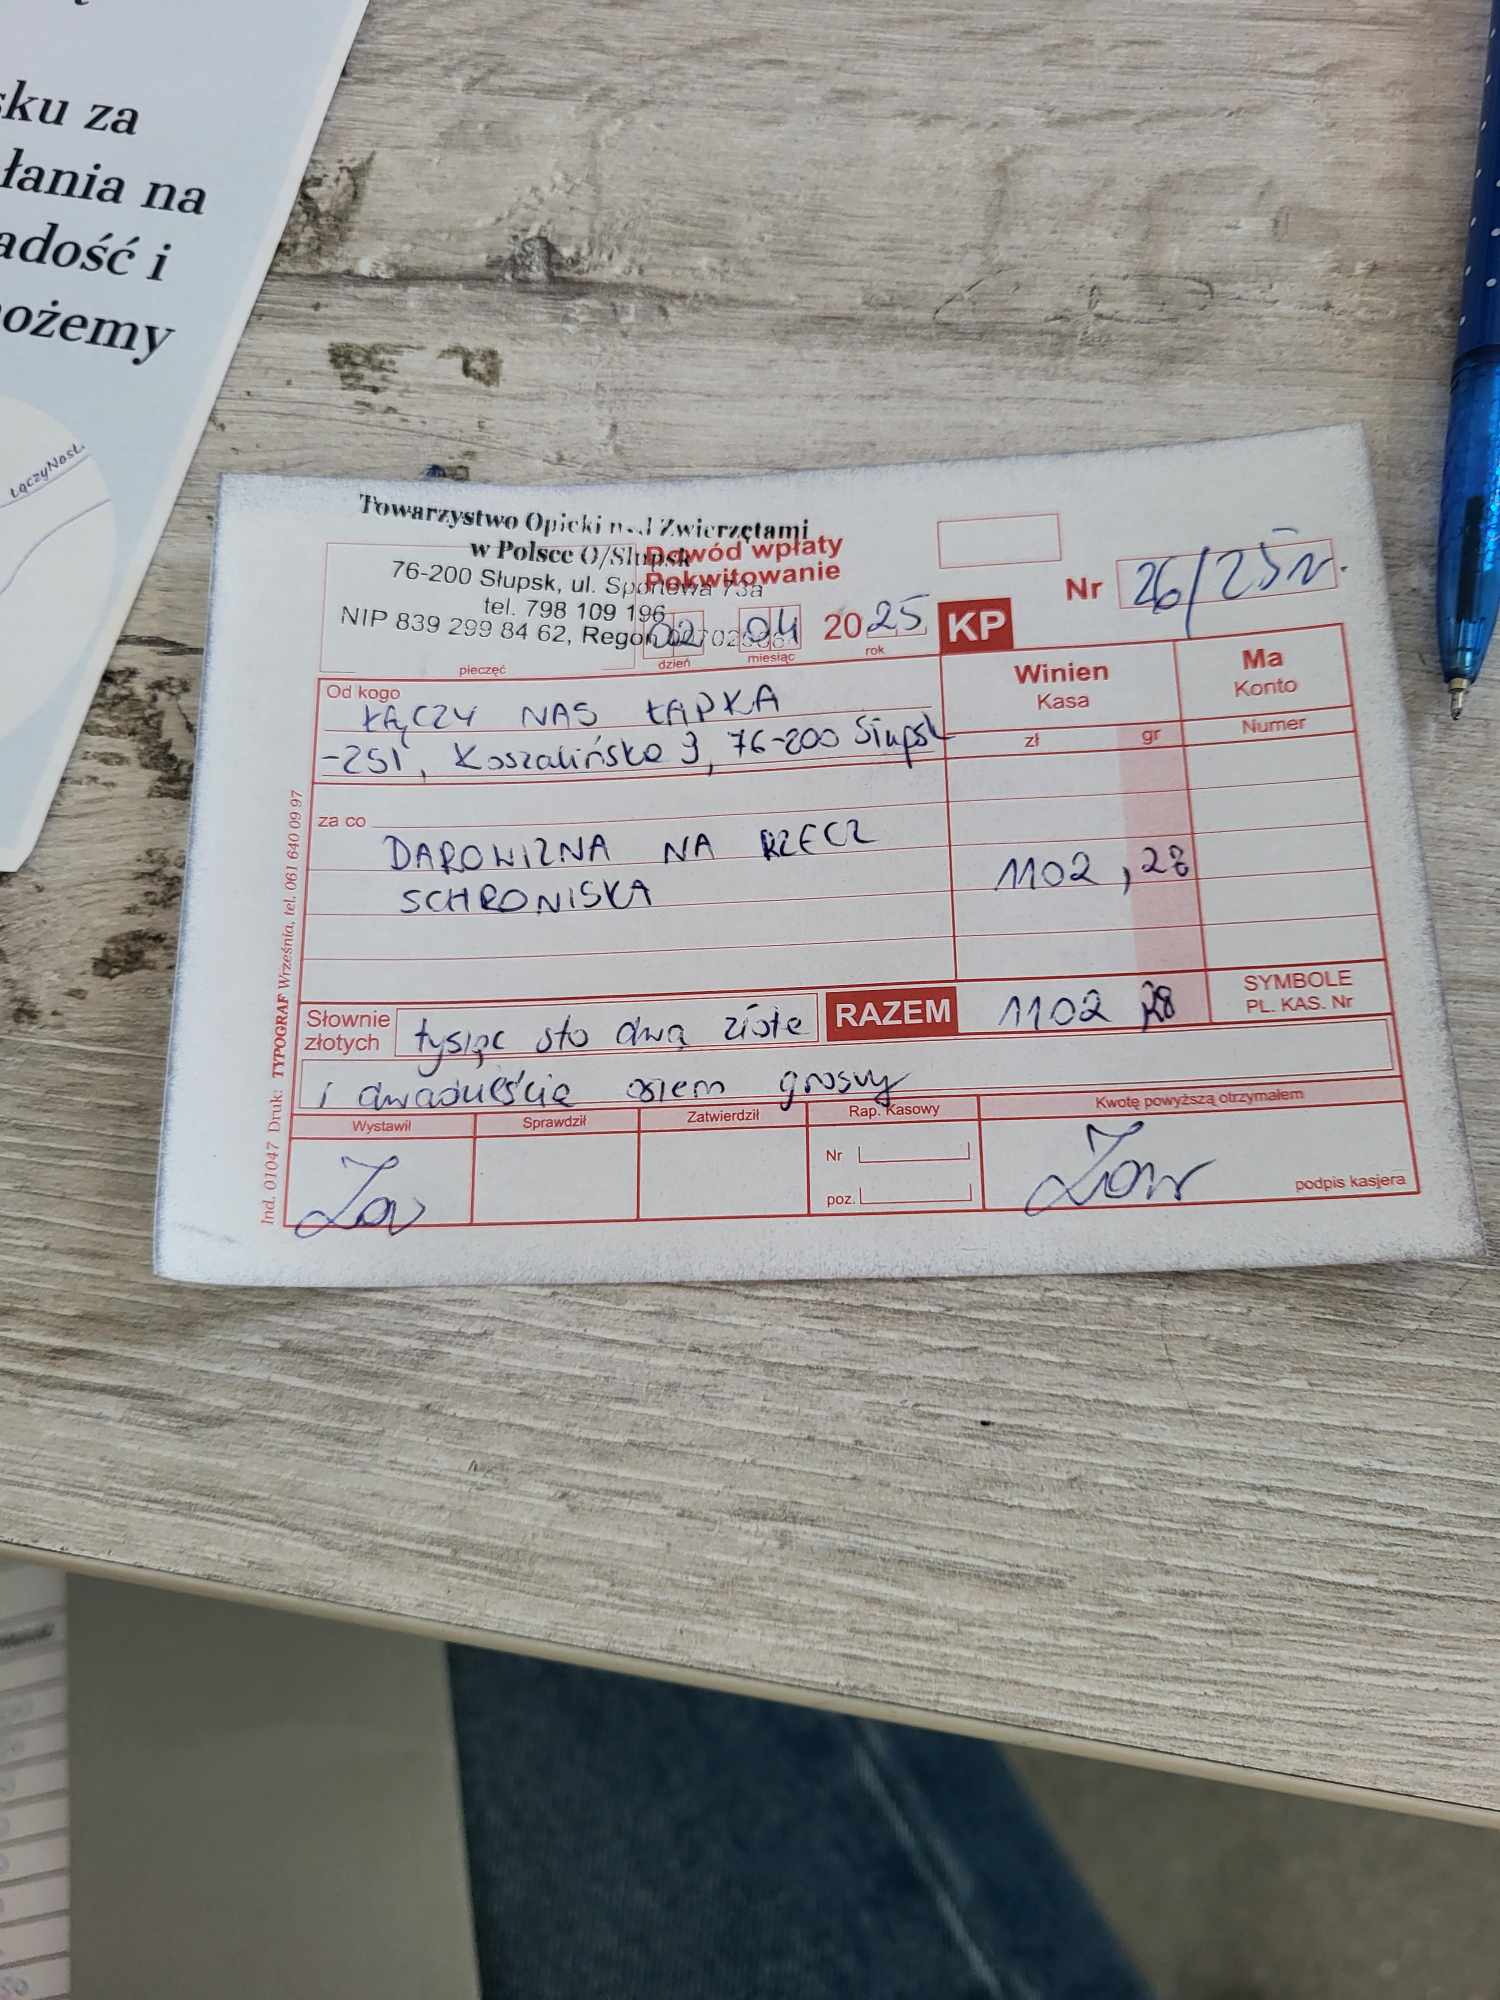 sku za
łania na
adość i
ożemy
ŁączyNasŁ
Towarzystwo Opieki nad Zwierzętami
w Polsce O/Słupsk
76-200 Słupsk, ul. Sportowa 73a
tel. 798 109 196
NIP 839 299 84 62, Regon
pieczęć
Dowód wpłaty
Pokwitowanie
02 04 2025
dzień miesiąc rok
KP
Nr 26/25r.
Od kogo
ŁĄCZY NAS ŁAPKA
-2SI, Koszalińska 3, 76-200 Słupsk
Winien
Kasa
zł gr
Ma
Konto
Numer
za co
DAROWIZNA NA RZECZ
SCHRONISKA
1102,28
Słownie
złotych
tysiąc sto dwa złote
RAZEM 1102 28
SYMBOLE
PL. KAS. Nr
i dwadzieścia osiem groszy
Wystawił Sprawdził Zatwierdził Rap. Kasowy Kwotę powyższą otrzymałem
Nr
poz.
podpis kasjera
Ind. 01047 Druk: TYPOGRAF Września, tel. 061 640 09 97